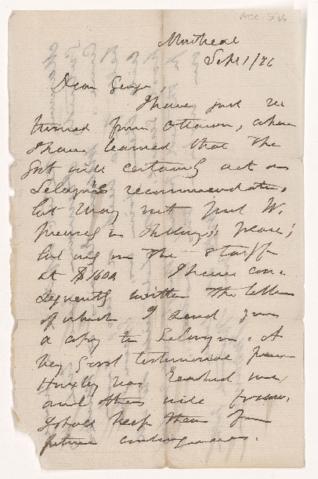 Montreal
Sept 1/76
Dear George,
I have just re
turned from Ottawa, where
I have learned that the
Govt will certainly act on
Selwyn's recommendation,
but may not put W.
in place;
but up on the staff
at $1600 I have con-
sequently written the letter
of which I send you
a copy to Selwyn. A
very good testimonial from
Huxley has reached me
and others will follow,
I shall keep them for
future contingencies.